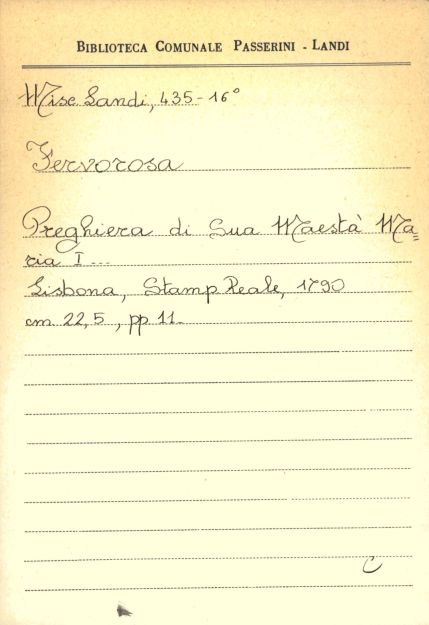 BIBLIOTECA COMUNALE PASSERINI - LANDI
Misc. Landi, 435-16°
Fervorosa
Preghiera di Sua Maestà Ma=
ria I...
Lisbona, Stamp Reale, 1790
cm. 22,5, pp 11.
C